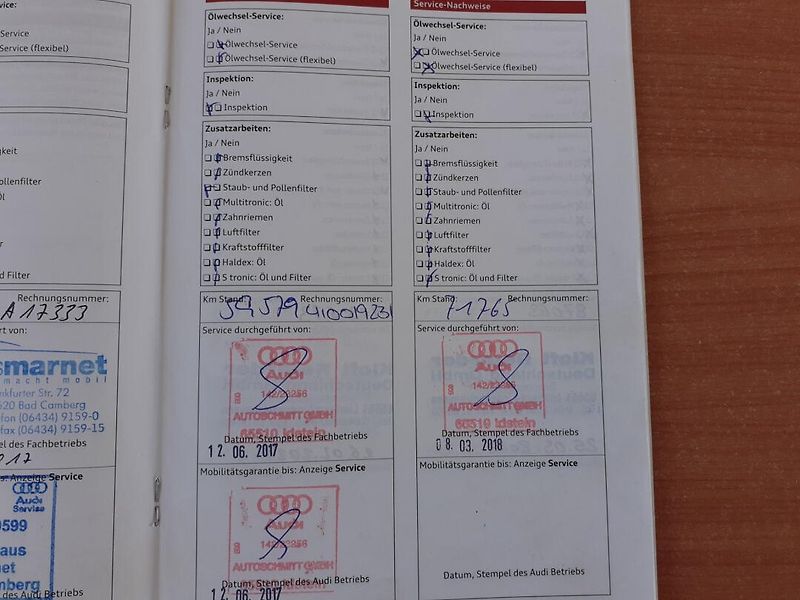 vice:
Service
Service (flexibel)
keit
ollenfilter
Öl
r
nd Filter
Rechnungsnummer:
A17333
rt von:
smarnet
macht mobil
nkfurter Str. 72
520 Bad Camberg
fon (06434) 9159-0
fax (06434) 9159-15
pel des Fachbetriebs
017
s: Anzeige Service
Audi
Service
0599
aus
net
mberg
des Audi Betriebs
Ölwechsel-Service:
Ja / Nein
Ölwechsel-Service
Ölwechsel-Service (flexibel)
Inspektion:
Ja / Nein
Inspektion
Zusatzarbeiten:
Ja / Nein
Bremsflüssigkeit
Zündkerzen
Staub- und Pollenfilter
Multitronic: Öl
Zahnriemen
Luftfilter
Kraftstofffilter
Haldex: Öl
S tronic: Öl und Filter
Km Stand: Rechnungsnummer:
54579 410019231
Service durchgeführt von:
Audi
142/23256
AUTOSCHMITT GMBH
65510 Idstein
Datum, Stempel des Fachbetriebs
12. 06. 2017
Mobilitätsgarantie bis: Anzeige Service
Audi
142/23256
AUTOSCHMITT GMBH
Datum, Stempel des Audi Betriebs
12. 06. 2017
Service-Nachweise
Ölwechsel-Service:
Ja / Nein
Ölwechsel-Service
Ölwechsel-Service (flexibel)
Inspektion:
Ja / Nein
Inspektion
Zusatzarbeiten:
Ja / Nein
Bremsflüssigkeit
Zündkerzen
Staub- und Pollenfilter
Multitronic: Öl
Zahnriemen
Luftfilter
Kraftstofffilter
Haldex: Öl
S tronic: Öl und Filter
Km Stand: Rechnungsnummer:
71765
Service durchgeführt von:
Audi
142/23256
AUTOSCHMITT GMBH
65510 Idstein
Datum, Stempel des Fachbetriebs
08. 03. 2018
Mobilitätsgarantie bis: Anzeige Service
Datum, Stempel des Audi Betriebs